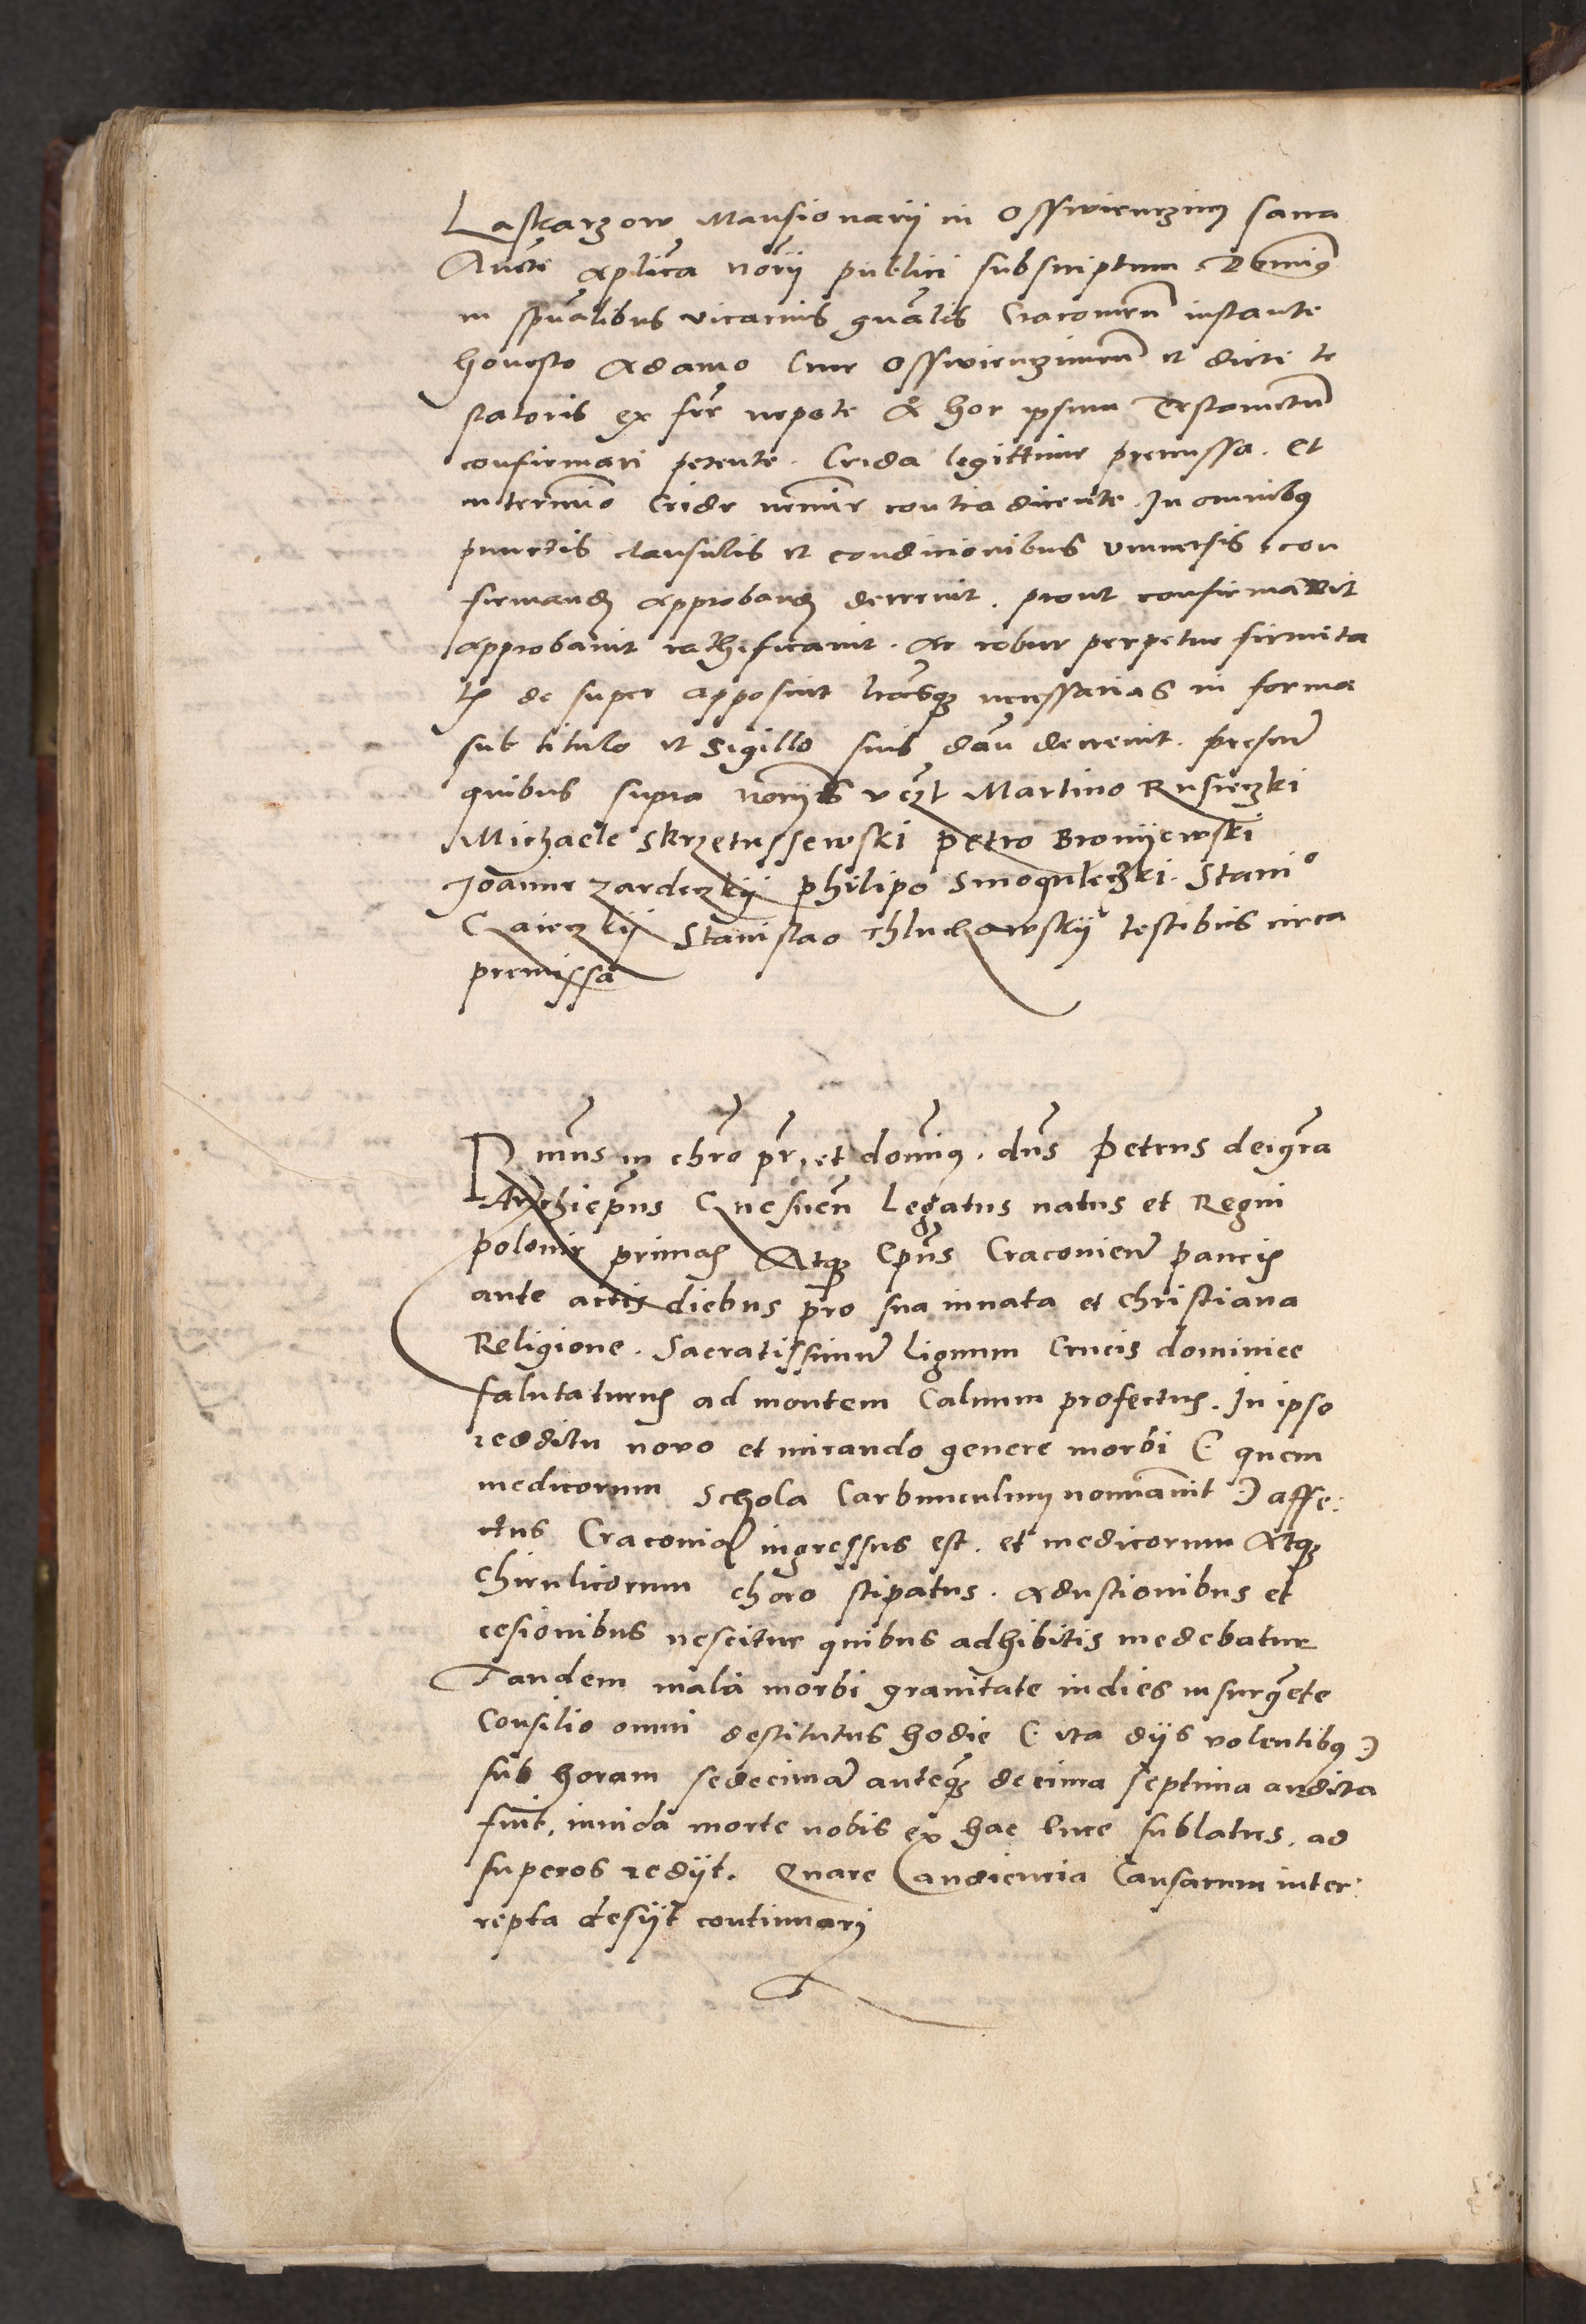 Laskarzow Mansionarij in Osswienczim sacra
Aucte aplica norij publici subscriptum Dominus
in spualibus vicarius gnalis Cracouien instante
honesto Adamo Cive Osswienczimen et dicti te
statoris ex fre nepote & hoc ipsum Testamentum
confirmari petente. Crida legittime premissa. Et
in termino Cride nemine contradicente. In omnibus
punctis clausulis et condicionibus vniuersis con
firmand approband decreuit. prout confirmauit
approbauit rathificauit. Ac robur perpetue firmita
tis de super apposuit lrasque necessarias in forma
sub titulo et Sigillo suis dari decreuit. presen
quibus supra vczt Martino Rusieczki
Michaele Skrzetussewski Petro Bronijewski
Joanne Zardeczkij Philipo Smoguleczki. Stanio
Stanislao Chluchawskij testibus circa
premissa
Rmus in chro pr, et dominus. dns Petrus dei gra
Archiepus Gnesnen Legatus natus et Regni
polonie primas Atque Epus Cracouien paucis
ante actis diebus pro sua innata et Christiana
Religione. Sacratissimum Lignum Crucis dominice
salutaturus ad montem Caluum profectus. In ipso
redditu novo et mirando genere morbi (: quem
medicorum Schola Carbunculum nominauit :) affe:
ctus Cracouiam ingressus est. et medicorum Atque
chirulicorum choro stipatus. Adustionibus et
cesionibus nescitur quibus adhibitis medebatur
Tandem mala morbi grauitate indies insurgete
Consilio omni destitutus hodie (: ita dijs volentibus :)
sub horam sedecimam anteque decima septima audita
fuit, inuida morte nobis ex hac luce sublatus. ad
superos redijt. Quare audiencia Causarum inter:
repta desijt continuari